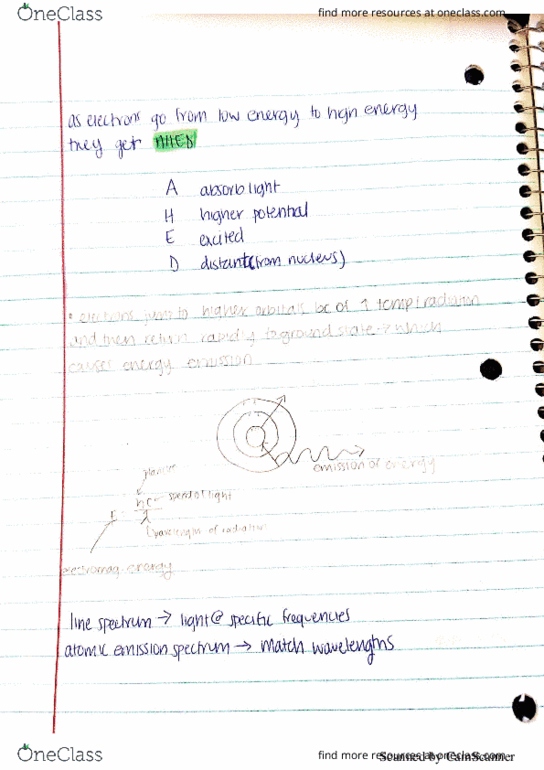 OneClass
find more resources at oneclass.com
as electrons go from low energy to high energy
they get AHED
A absorb light
H higher potential
E excited
D distant (from nucleus)
• electrons jump to higher orbitals bc of ↑ temp/radiation
and then return rapidly to ground state → which
causes energy emission
emission of energy
hc speed of light
E
λ
wavelength of radiation
electromag energy
line spectrum → light @ specific frequencies
atomic emission spectrum → match wavelengths
OneClass
find more resources at oneclass.com
Scanned by CamScanner